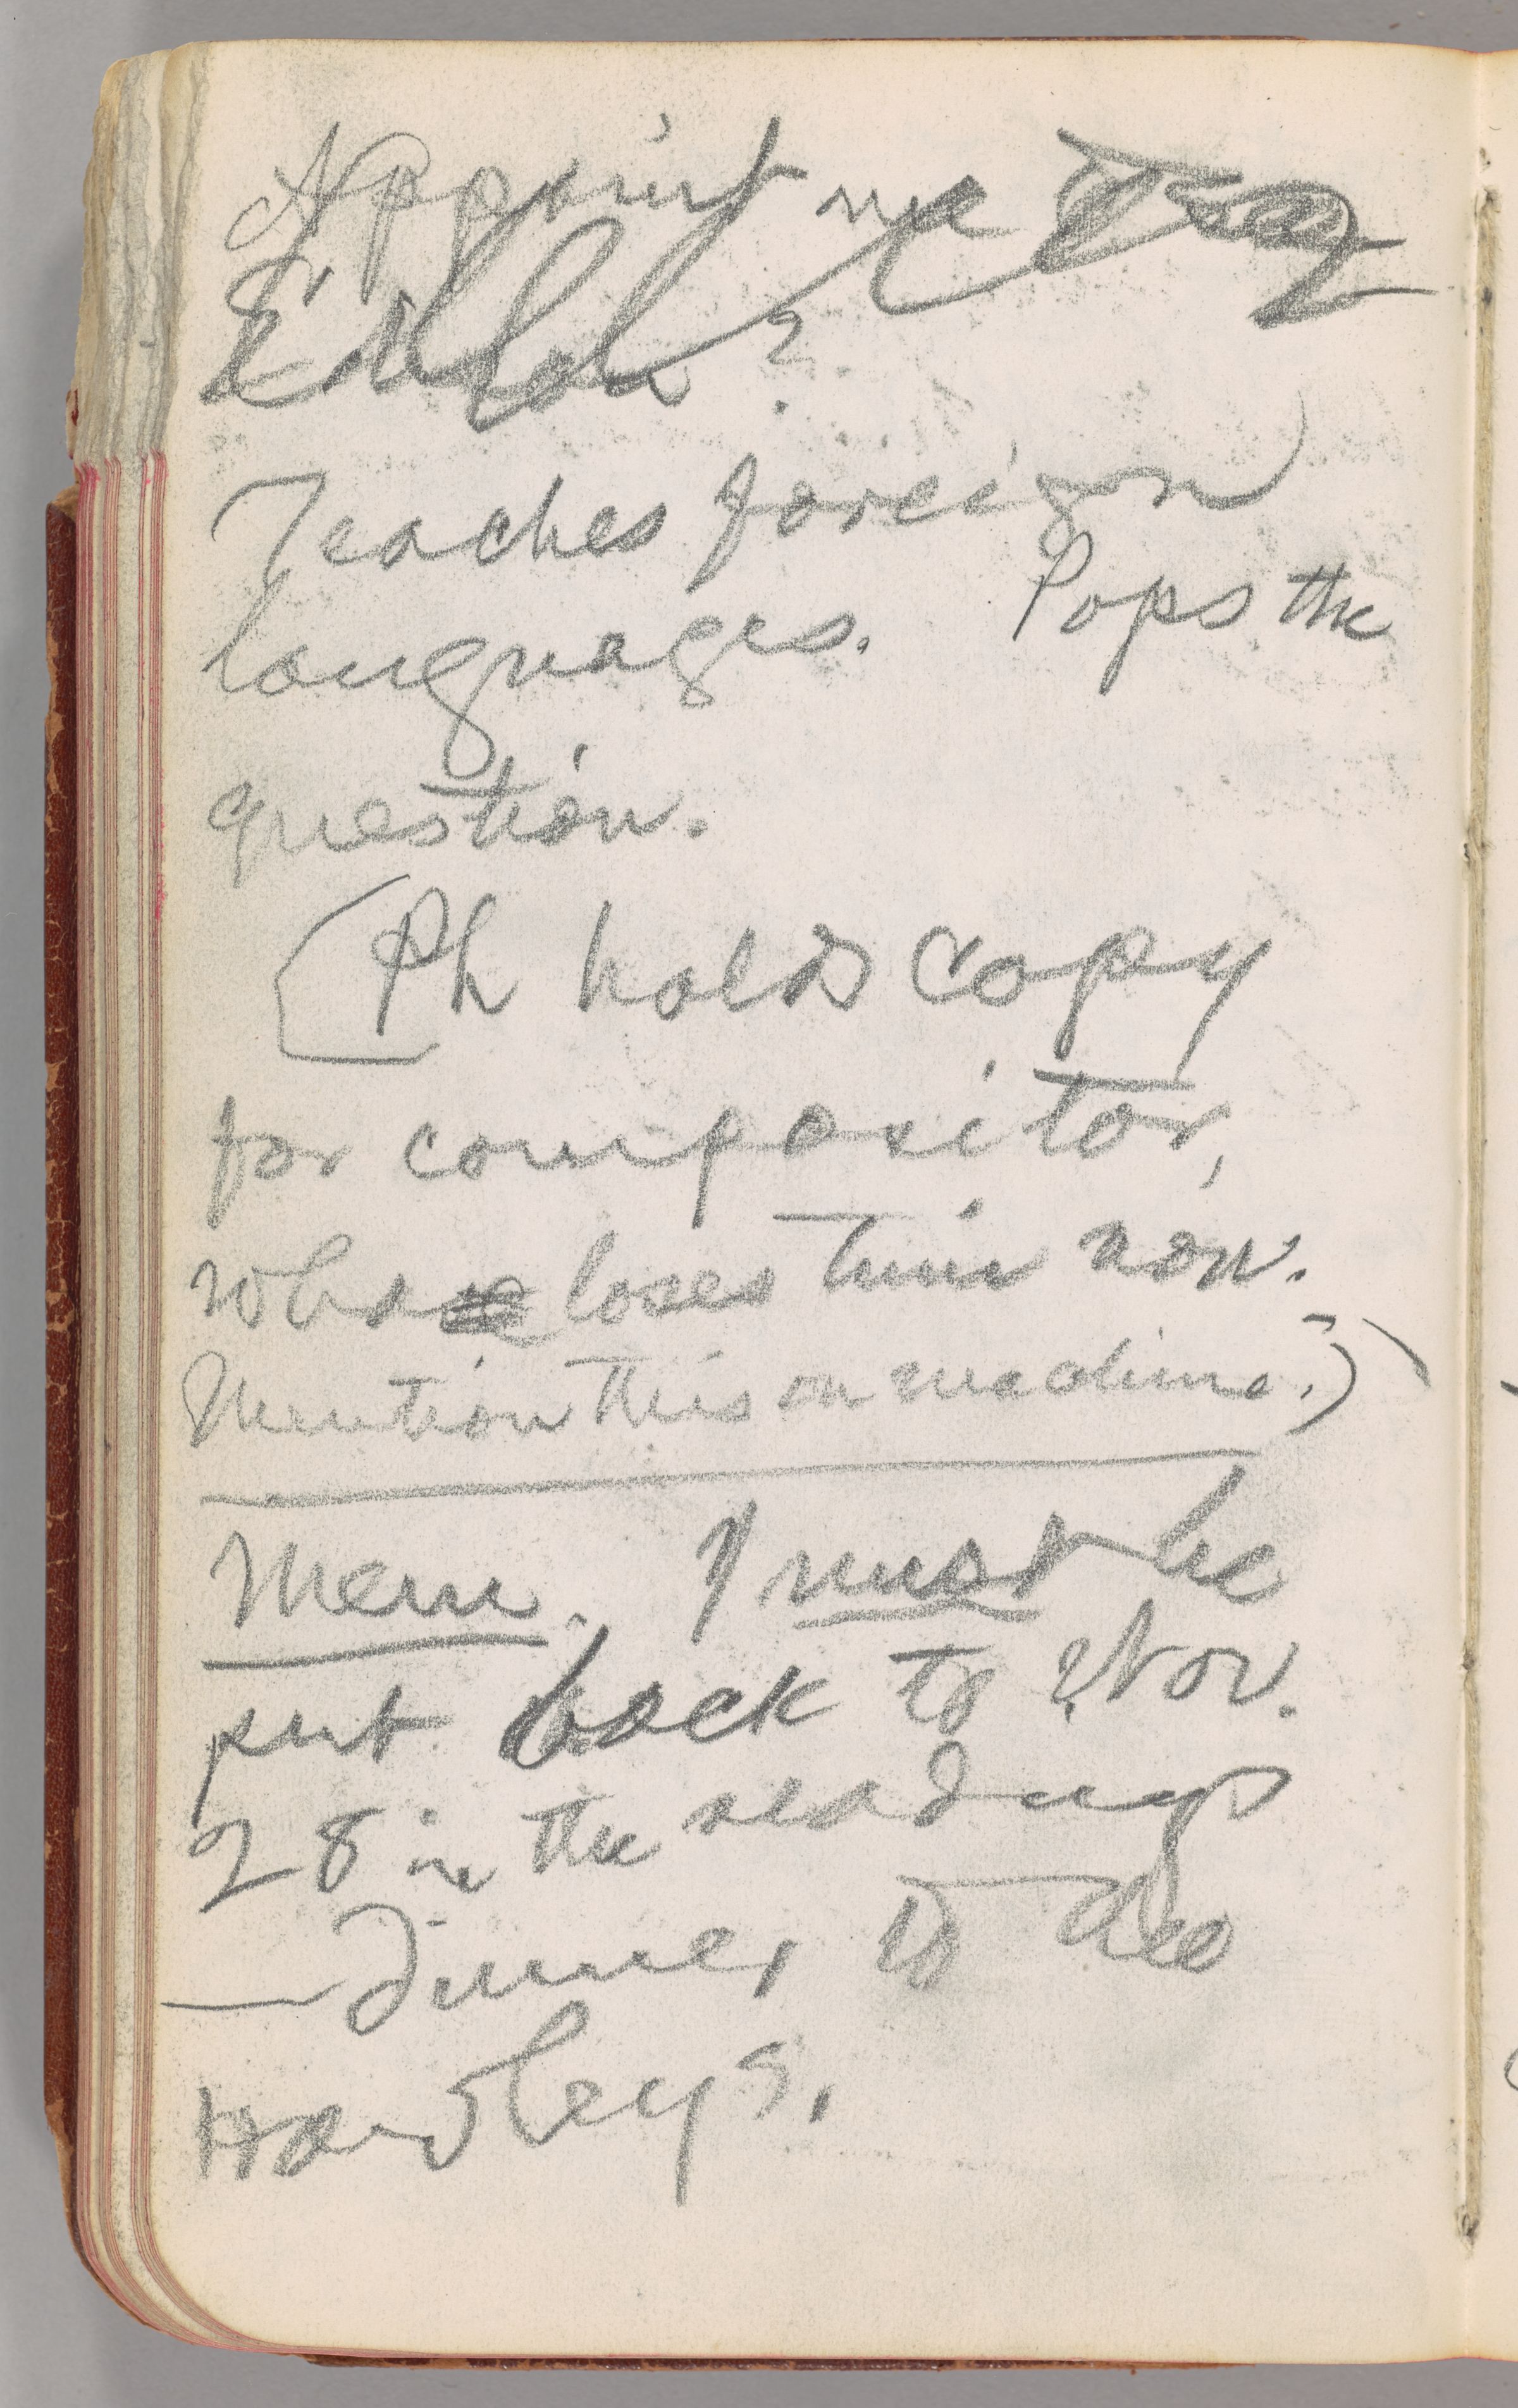 Appoint me
Teaches foreign
languages. Pops the
question.
[Ph holds copy
for compositor,
who loses time now.
Mention this on machine.)
Mem. I must be
put back to Nov.
28 in the readings
—dinner to the
Hawleys.